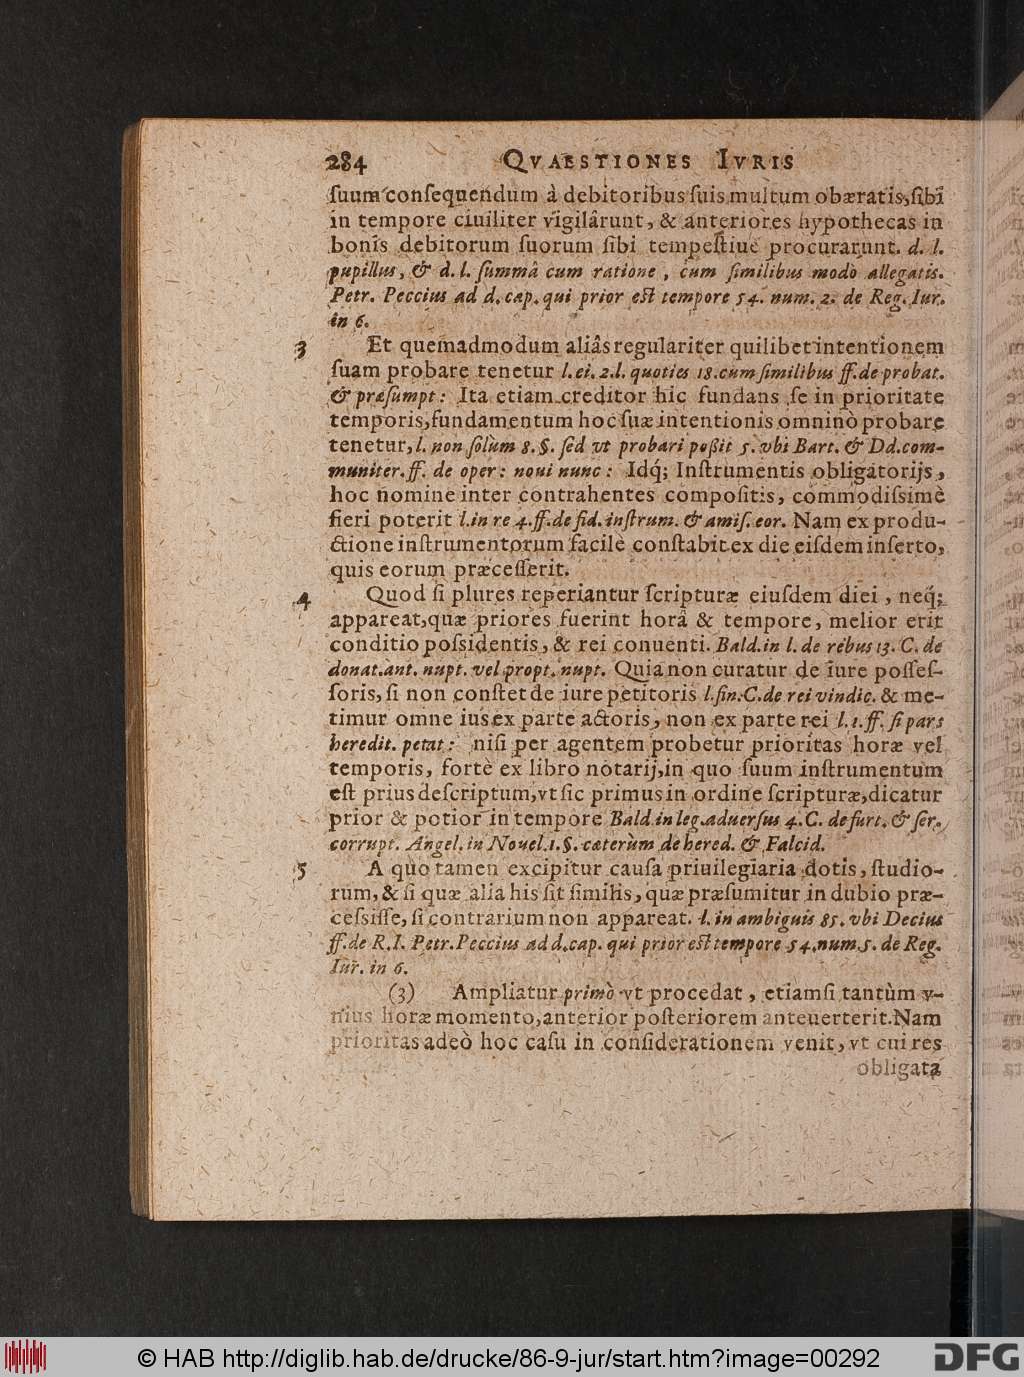 284 QVAESTIONES IVRIS
ſuum conſequendum à debitoribus ſuis multum obæratis, ſibi
in tempore ciuiliter vigilârunt, & anteriores hypothecas in
bonis debitorum ſuorum ſibi tempeſtiuè procurarunt. d. l.
pupillus, & d. l. ſummâ cum ratione, cum ſimilibus modò allegatis.
Petr. Peccius ad d. cap. qui prior eſt tempore 54. num. 2. de Reg. Iur.
in 6.
3 Et quemadmodum aliâs regulariter quilibet intentionem
ſuam probare tenetur l. ei. 2. l. quoties 18. cum ſimilibus ff. de probat.
& præſumpt: Ita etiam creditor hic fundans ſe in prioritate
temporis, fundamentum hoc ſuæ intentionis omninò probare
tenetur, l. non ſolùm 8. §. ſed vt probari poßit 5. vbi Bart. & Dd. com-
muniter. ff. de oper: noui nunc: Idq́; Inſtrumentis obligatorijs,
hoc nomine inter contrahentes compoſitis, commodiſsimè
fieri poterit l. in re 4. ff. de fid. inſtrum. & amiſ. eor. Nam ex produ-
ctione inſtrumentorum facilè conſtabit ex die eiſdem inſerto,
quis eorum præceſſerit.
4 Quod ſi plures reperiantur ſcripturæ eiuſdem diei, neq́;
appareat, quæ priores fuerint horâ & tempore, melior erit
conditio poſsidentis, & rei conuenti. Bald. in l. de rebus 13. C. de
donat. ant. nupt. vel propt. nupt. Quia non curatur de iure poſſeſ-
ſoris, ſi non conſtet de iure petitoris l. fin. C. de rei vindic. & me-
timur omne ius ex parte actoris, non ex parte rei l. 1. ff. ſi pars
heredit. petat: niſi per agentem probetur prioritas horæ vel
temporis, fortè ex libro notarij, in quo ſuum inſtrumentum
eſt prius deſcriptum, vt ſic primus in ordine ſcripturæ, dicatur
prior & potior in tempore Bald. in leg. aduerſus 4. C. de furt. & ſer.
corrupt. Angel. in Nouel. 1. §. cæterùm de hered. & Falcid.
5 A quo tamen excipitur cauſa priuilegiaria dotis, ſtudio-
rum, & ſi quæ alia his ſit ſimilis, quæ præſumitur in dubio præ-
ceſsiſſe, ſi contrarium non appareat. l. in ambiguis 85. vbi Decius
ff. de R. I. Petr. Peccius ad d. cap. qui prior eſt tempore 54. num. 5. de Reg.
Iur. in 6.
(3) Ampliatur primò vt procedat, etiamſi tantùm v-
nius horæ momento, anterior poſteriorem anteuerterit. Nam
prioritas adeò hoc caſu in conſiderationem venit, vt cui res
obligata
© HAB http://diglib.hab.de/drucke/86-9-jur/start.htm?image=00292
DFG